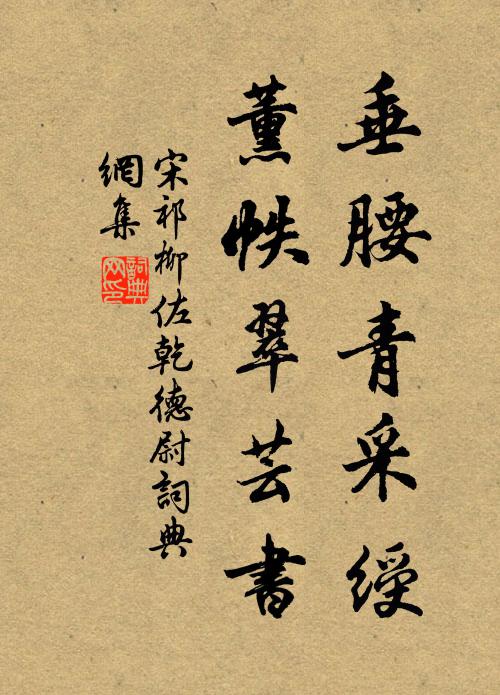 垂腰青采綬
薰帙翠芸書
宋祁柳佐乾德尉詞典
網集
詞典網印